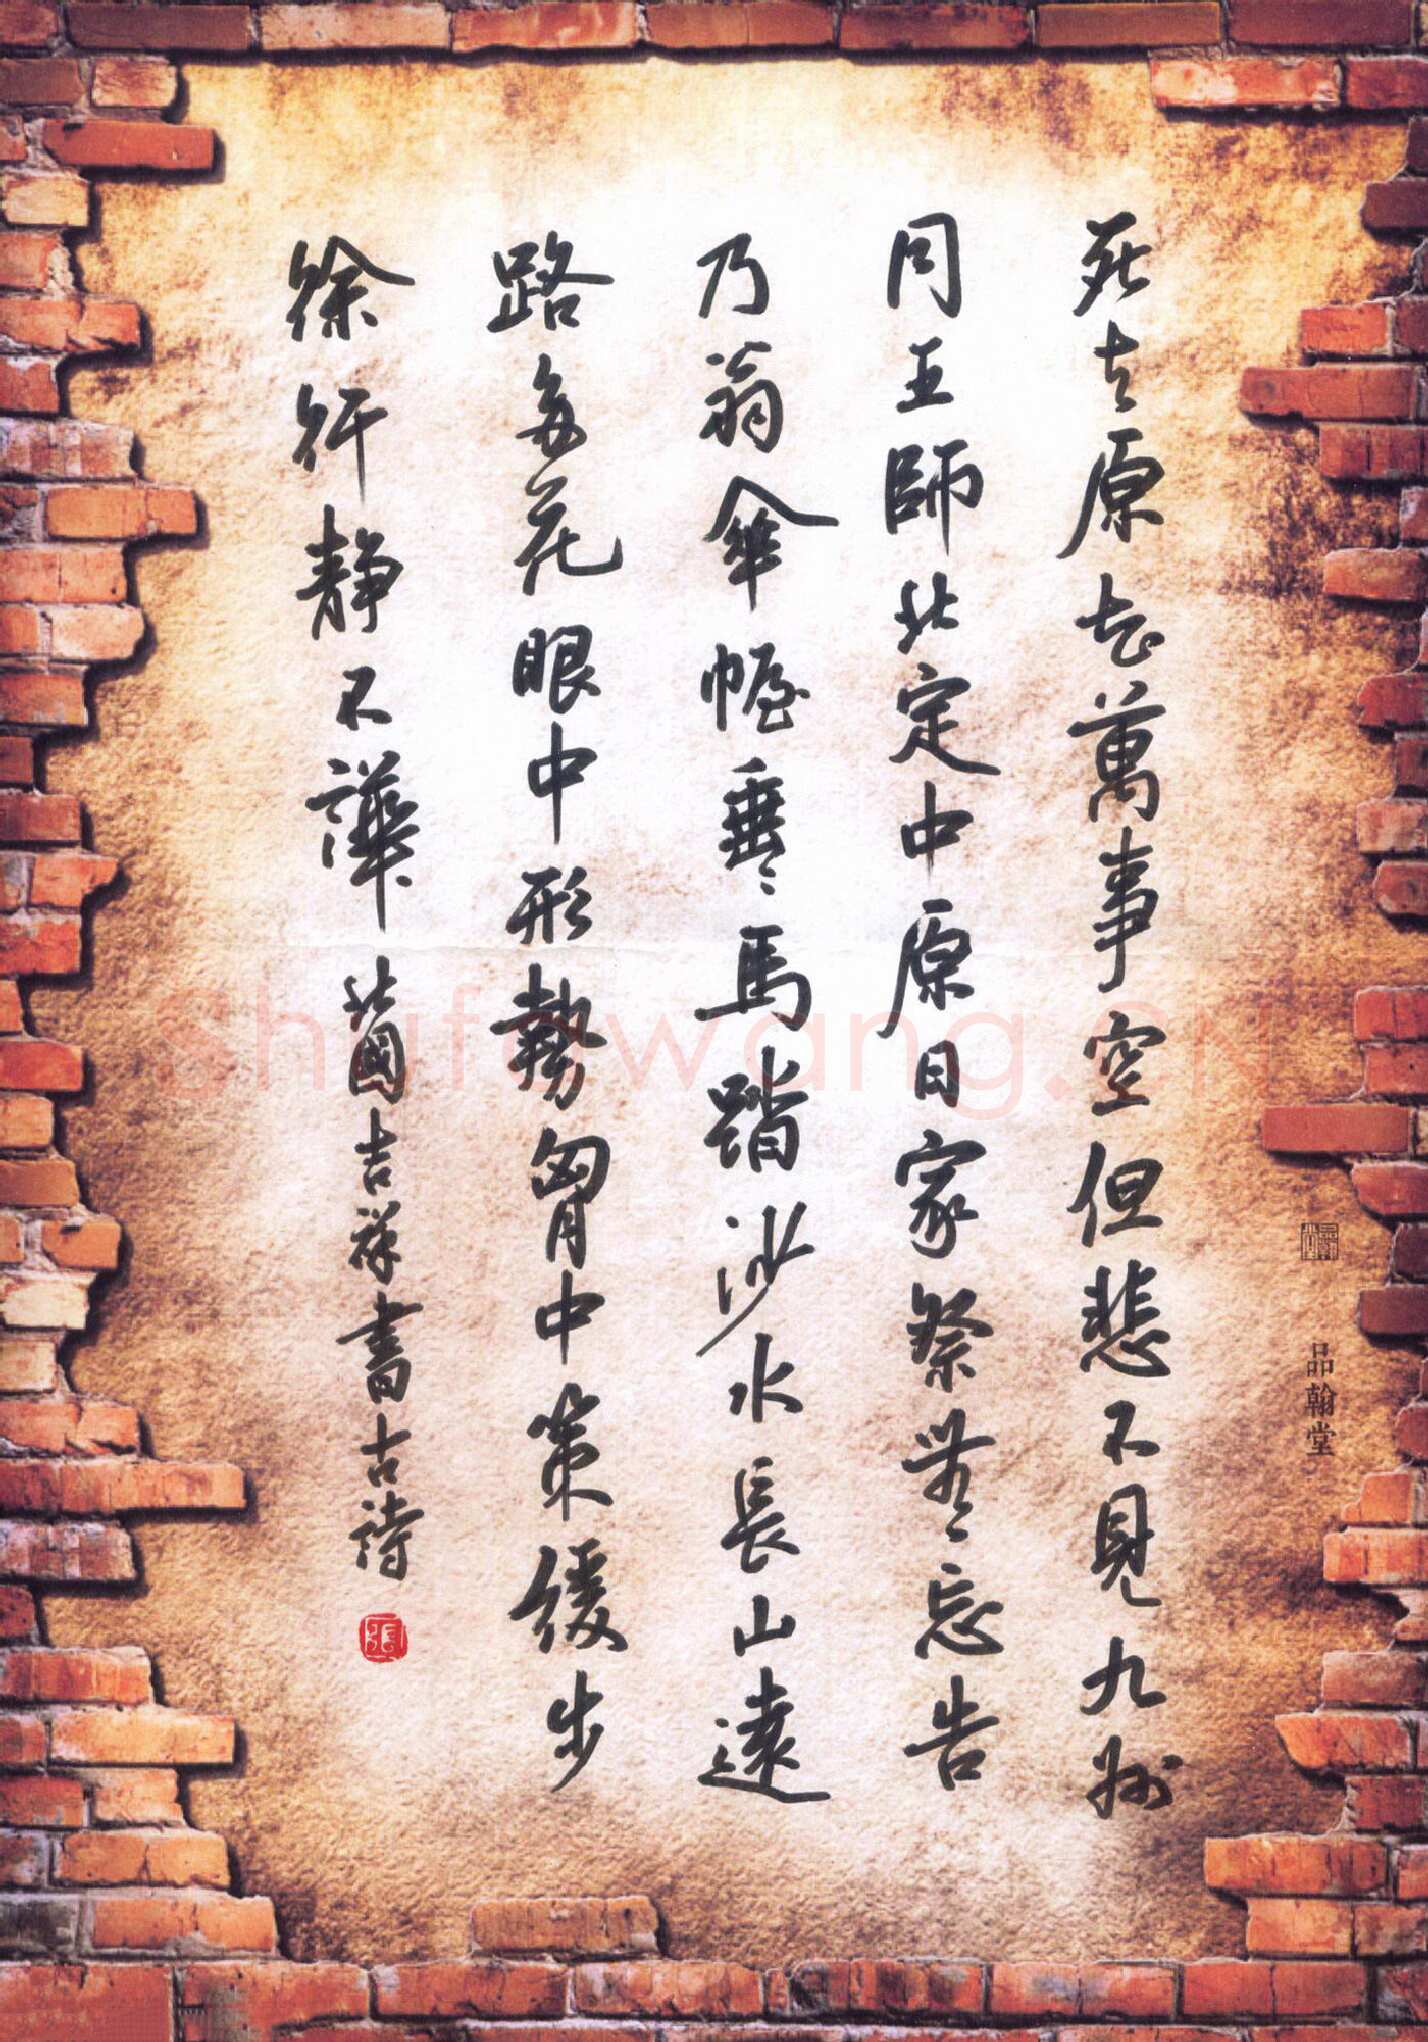 死去原知萬事空但悲不見九州
同王師北定中原日家祭無忘告
乃翁傘幄垂々馬踏沙水長山遠
路多花眼中形勢胷中策緩步
徐行静不譁 吉祥書古詩
品翰堂
shufawang.CN